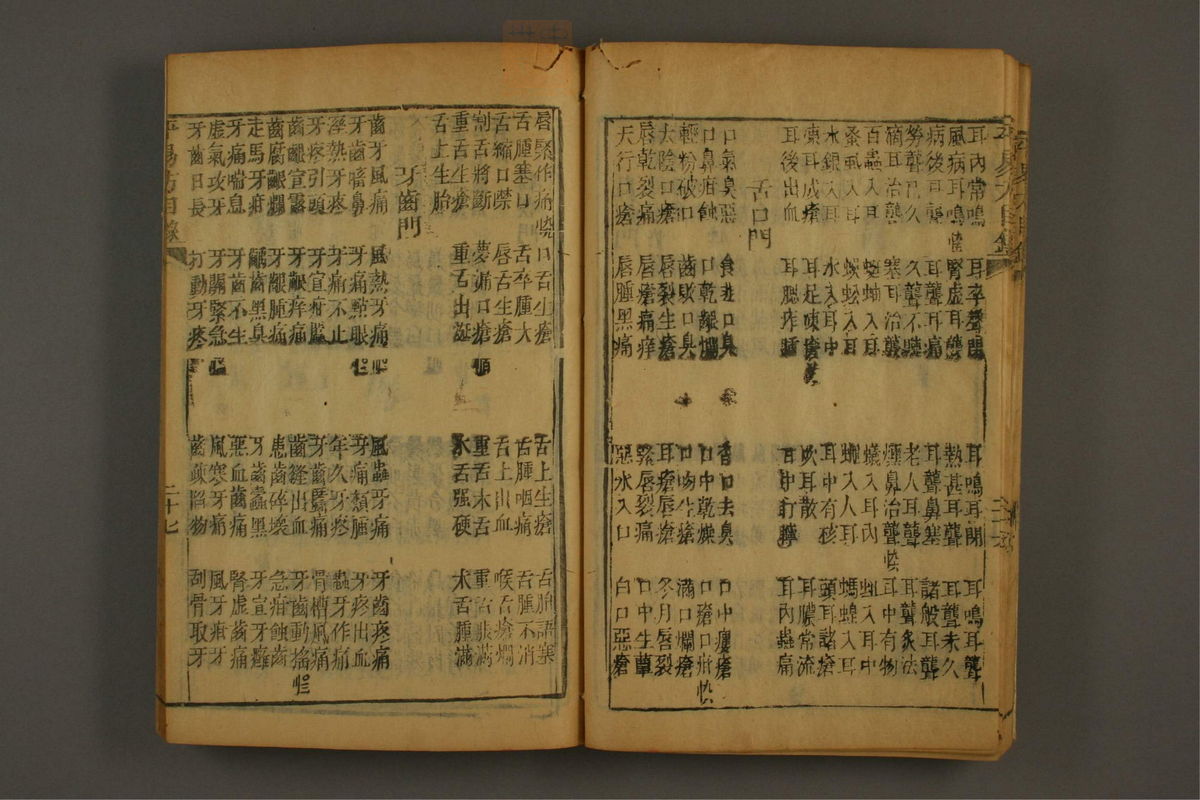 耳內常鳴 耳卒聾閉 耳鳴耳閉 耳鳴耳聾
風病耳鳴 腎虛耳聾 熱甚耳聾 耳聾未久
病後耳聾 耳聾耳痛 耳聾鼻塞 諸般耳聾
勞聾已久 久聾不聽 老人耳聾 耳聾灸法
滴耳治聾 塞耳治聾 鼻治聾 耳中有物
百蟲入耳 入耳 蟻入耳內 入耳中
蚤虱入耳 蜈蚣入耳 入人耳 螞蝗入耳
水銀入耳 水入耳中 耳中有核 頭耳諸瘡
凍耳成瘡 耳足凍瘡 吹耳散 耳膿常流
耳後出血 耳腮腫 耳中疔 耳內蟲痛
舌口門
口氣臭惡 食韭口臭 香口去臭 口中瘡
口鼻疳蝕 口乾悶 口中乾燥 口瘡口疳
輕粉破口 齒敗口臭 口吻生瘡 滿口爛瘡
太陰口瘡 唇裂生瘡 耳瘡唇瘡 冬月唇裂
唇乾裂痛 唇瘡痛痒 緊唇裂痛 口中生蕈
天行口瘡 唇腫黑痛 惡水入口 白口惡瘡
唇緊作痛 口舌生瘡 舌上生瘡 舌語塞
舌腫塞口 舌卒腫大 舌腫咽痛 舌腫不消
舌縮口噤 唇舌生瘡 舌上出血 喉舌瘡爛
割舌將斷 口瘡 重舌木舌 重舌脹滿
重舌生瘡 重舌出涎 木舌强硬 木舌腫滿
舌上生胎
牙齒門
齒牙風痛 風熱牙痛 風蟲牙痛 牙齒疼痛
牙痛㗜鼻 牙痛點眼 牙痛顋腫 牙疼出血
熱牙疼 牙痛不止 年久牙疼 蟲牙作痛
牙疼引頭 牙宣疳 牙齒痛 骨槽風痛
齒齦宣露 牙齦痒痛 齒縫出血 牙齒動搖
齒腐齦爛 牙齦腫痛 患齒碎壞 急疳蝕齒
走馬牙疳 齲齒黑臭 牙齒蠹黑 牙宣牙癰
牙痛喘息 牙齒不生 惡血齒痛 腎虛齒痛
虛氣攻牙 牙關緊急 風寒牙痛 風牙疳牙
牙齒日長 打動牙疼 齒物 刮骨取牙
二十七